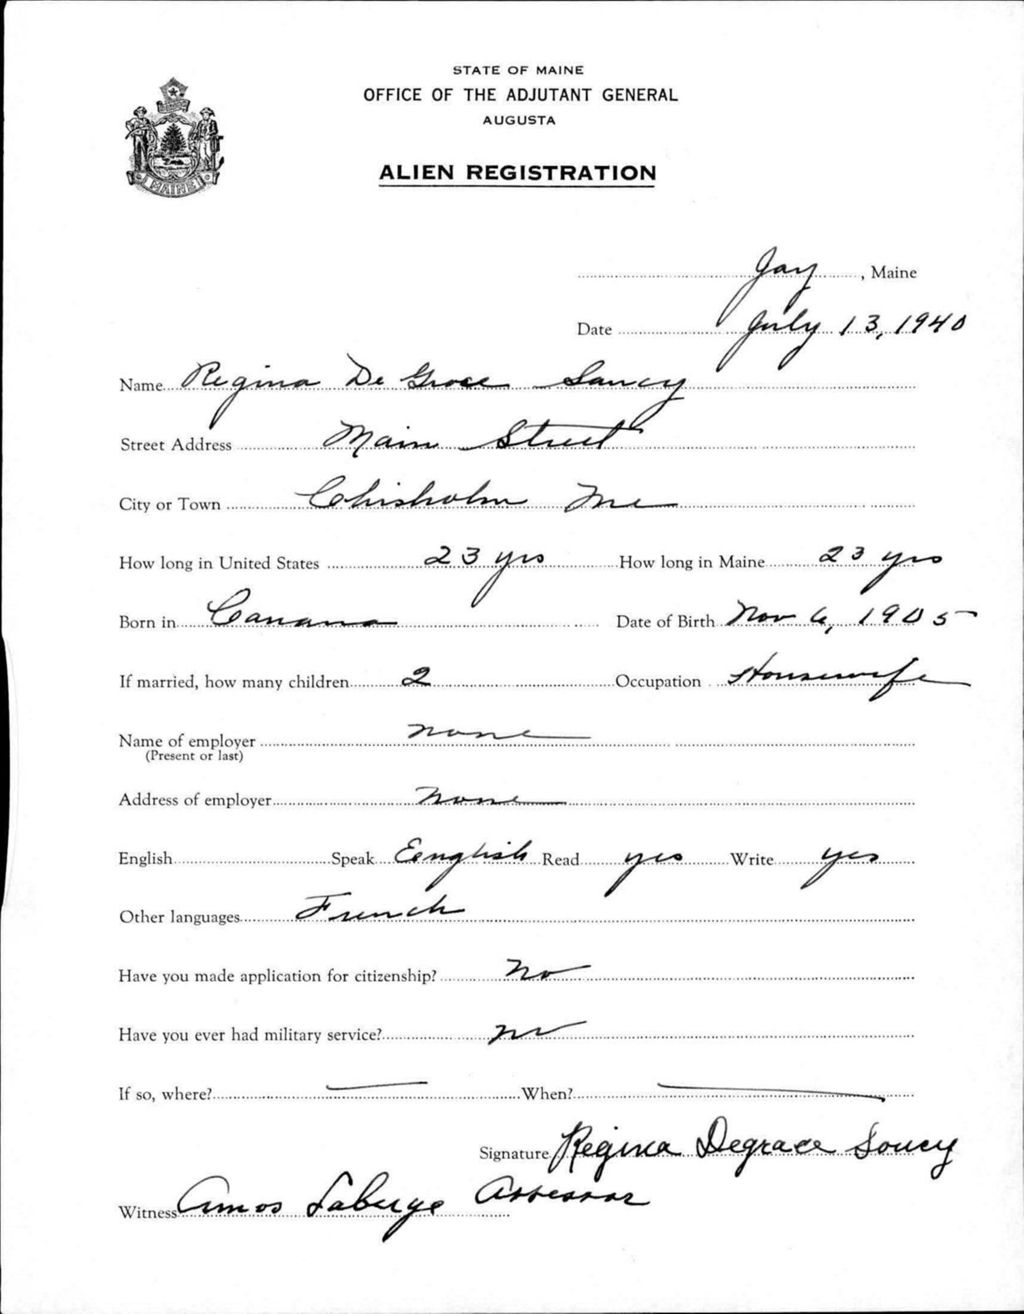 STATE OF MAINE
OFFICE OF THE ADJUTANT GENERAL
AUGUSTA
ALIEN REGISTRATION
MAINE
Jay, Maine
Date July 13, 1940
Name Regina De Grace Saucy
Street Address Main Street
City or Town Chisholm Me
How long in United States 23 yrs How long in Maine 23 yrs
Born in Canana Date of Birth Nov 6, 1905
If married, how many children 2 Occupation Housewife
Name of employer none
(Present or last)
Address of employer None
English Speak Eenglish Read yes Write yes
Other languages French
Have you made application for citizenship? No
Have you ever had military service? no
If so, where? — When? —
Signature Regina Degrace Soucy
Witness Amos Laberge Assessor